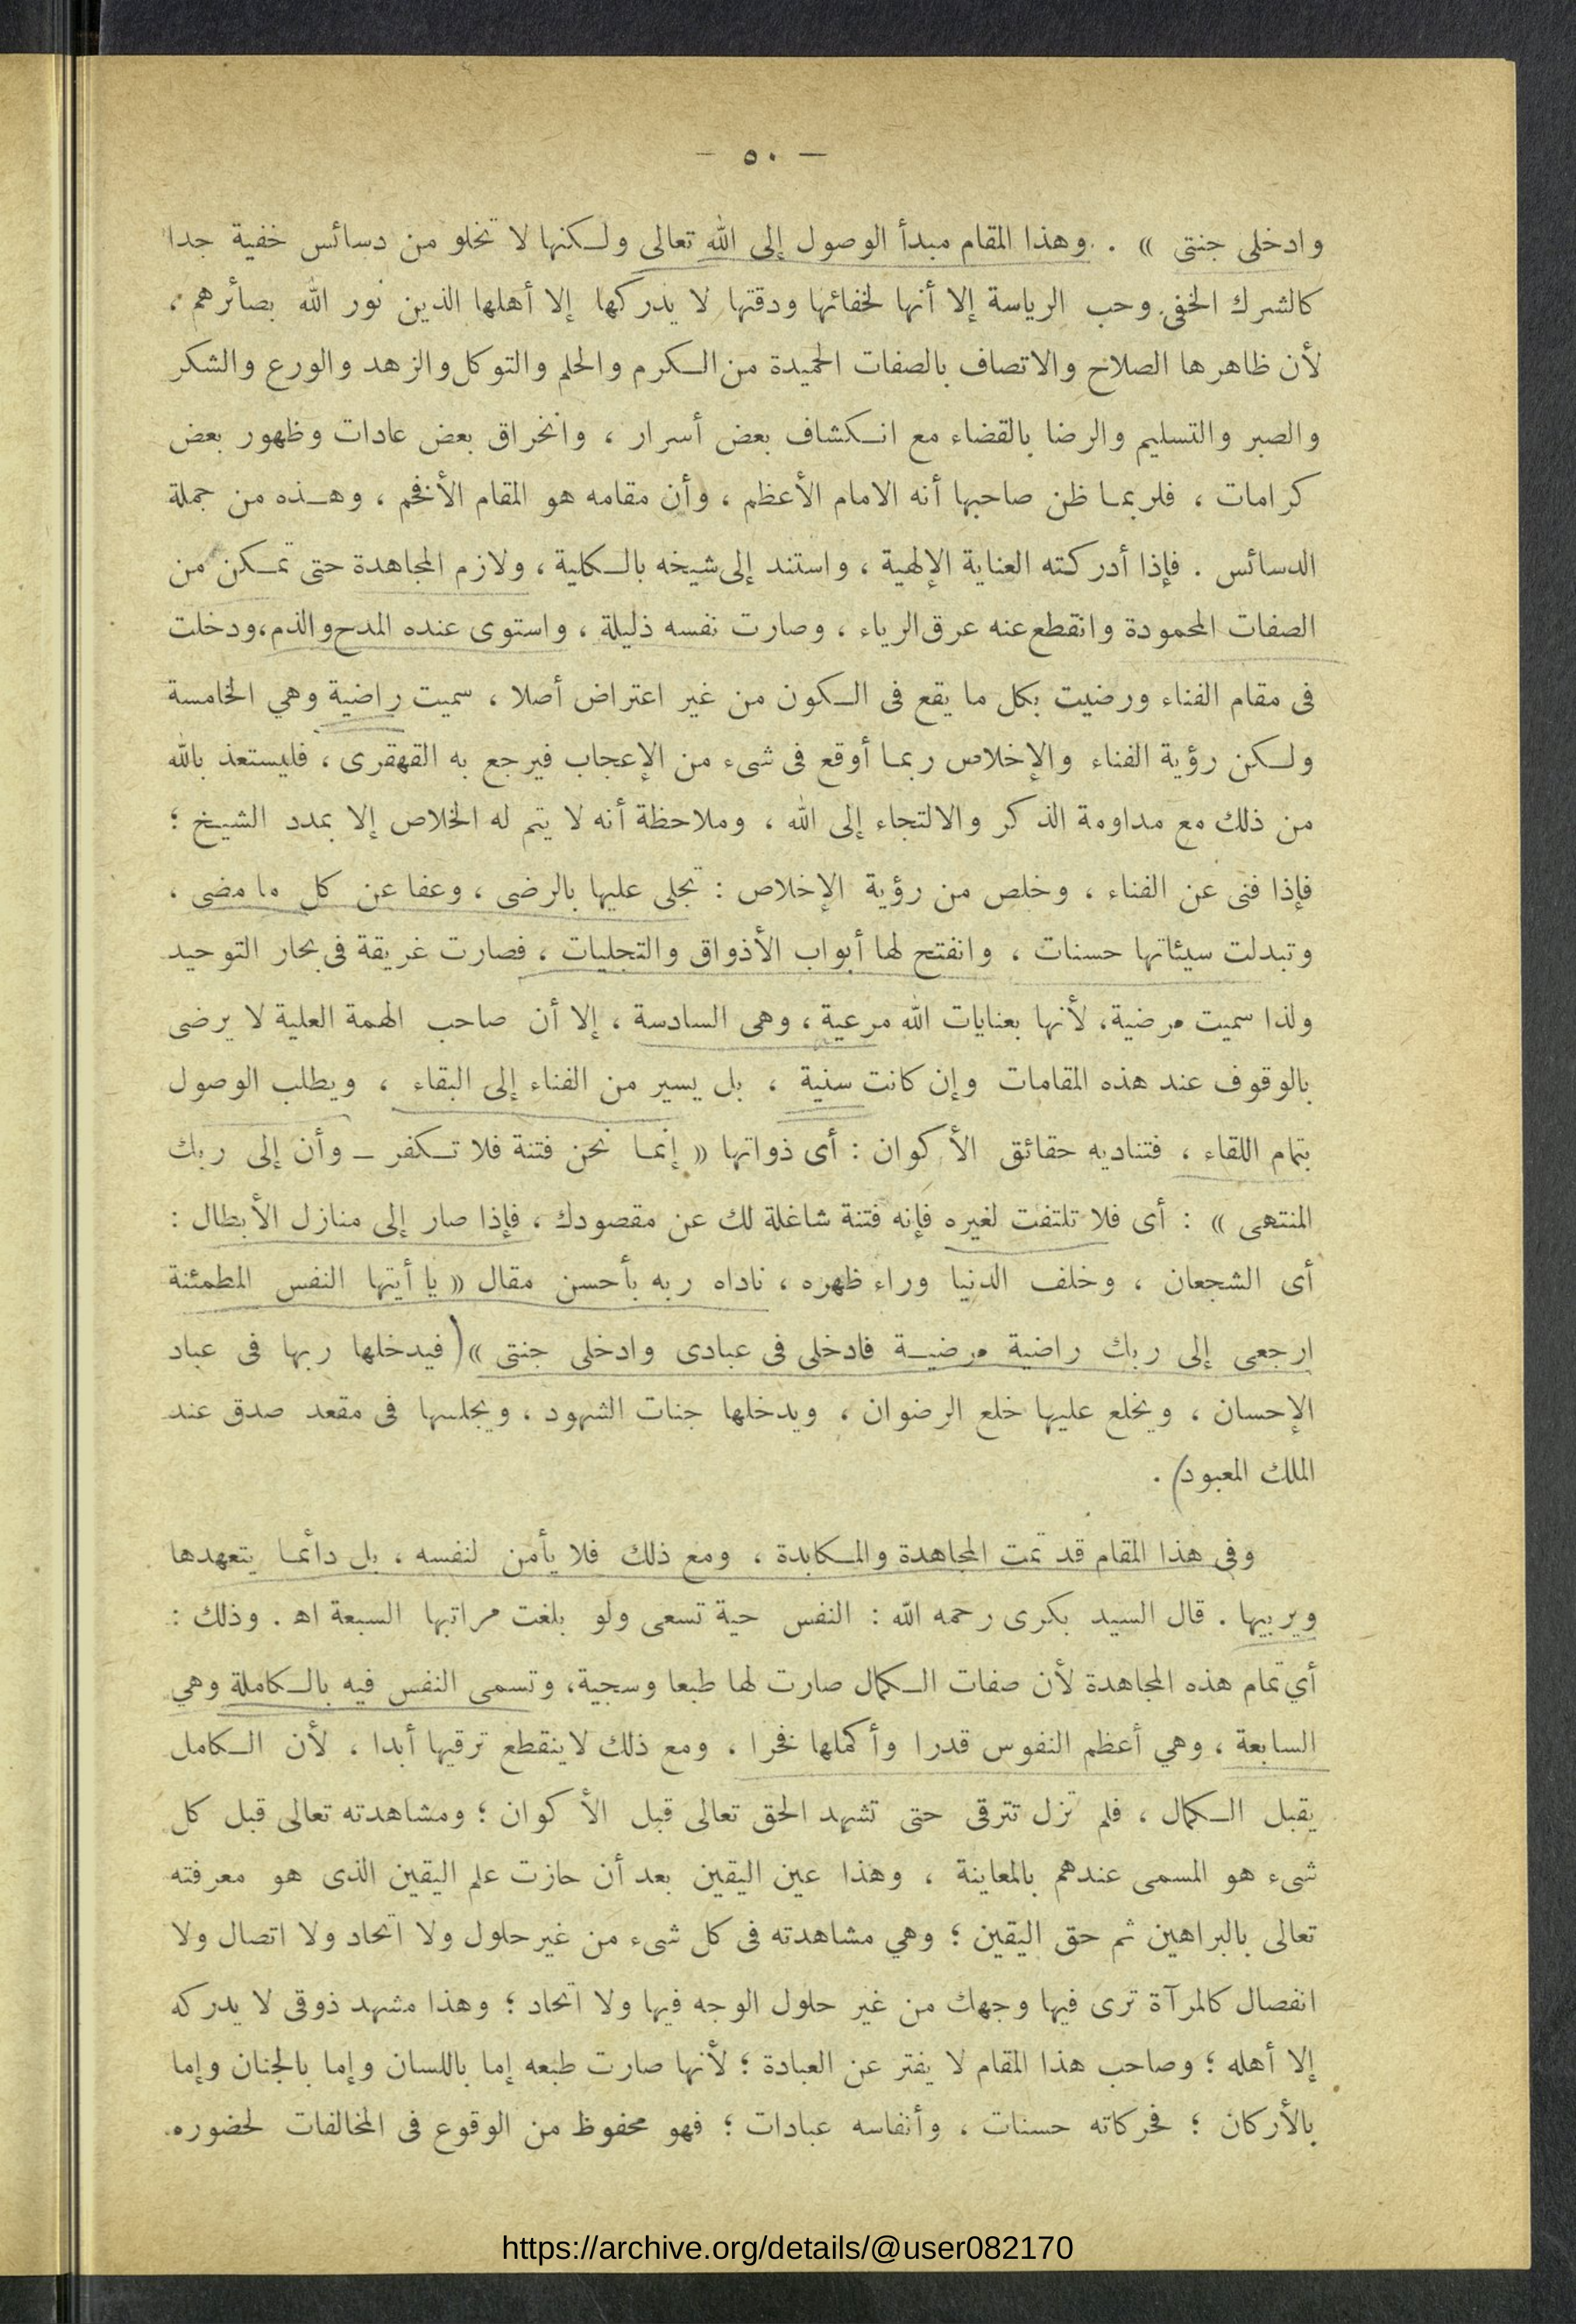 — ٥٠ —
وادخلى جنتى » . وهذا المقام مبدأ الوصول إلى الله تعالى ولكنها لا تخلو من دسائس خفية جدا
كالشرك الخفى وحب الرياسة إلا أنها لخفائها ودقتها لا يدركها إلا أهلها الذين نور الله بصائرهم ،
لأن ظاهرها الصلاح والاتصاف بالصفات الحميدة من الكرم والحلم والتوكل والزهد والورع والشكر
والصبر والتسليم والرضا بالقضاء مع انكشاف بعض أسرار ، وانخراق بعض عادات وظهور بعض
كرامات ، فلربما ظن صاحبها أنه الامام الأعظم ، وأن مقامه هو المقام الأفخم ، وهذه من جملة
الدسائس . فإذا أدركته العناية الإلهية ، واستند إلى شيخه بالكلية ، ولازم المجاهدة حتى تمكن من
الصفات المحمودة وانقطع عنه عرق الرياء ، وصارت نفسه ذليلة ، واستوى عنده المدح والذم، ودخلت
فى مقام الفناء ورضيت بكل ما يقع فى الكون من غير اعتراض أصلا ، سميت راضية وهي الخامسة
ولكن رؤية الفناء والإخلاص ربما أوقع فى شىء من الإعجاب فيرجع به القهقرى ، فليستعذ بالله
من ذلك مع مداومة الذكر والالتجاء إلى الله ، وملاحظة أنه لا يتم له الخلاص إلا بمدد الشيخ ؛
فإذا فنى عن الفناء ، وخلص من رؤية الإخلاص : تجلى عليها بالرضى ، وعفا عن كل ما مضى ،
وتبدلت سيئاتها حسنات ، وانفتح لها أبواب الأذواق والتجليات ، فصارت غريقة فى بحار التوحيد
ولذا سميت مرضية، لأنها بعنايات الله مرعية ، وهى السادسة ، إلا أن صاحب الهمة العلية لا يرضى
بالوقوف عند هذه المقامات وإن كانت سنية ، بل يسير من الفناء إلى البقاء ، ويطلب الوصول
بتمام اللقاء ، فتناديه حقائق الأكوان : أى ذواتها « إنما نحن فتنة فلا تكفر ــ وأن إلى ربك
المنتهى » : أى فلا تلتفت لغيره فإنه فتنة شاغلة لك عن مقصودك ، فإذا صار إلى منازل الأبطال :
أى الشجعان ، وخلف الدنيا وراء ظهره ، ناداه ربه بأحسن مقال « يا أيتها النفس المطمئنة
ارجعى إلى ربك راضية مرضية فادخلى فى عبادى وادخلى جنتى »( فيدخلها ربها فى عباد
الإحسان ، ويخلع عليها خلع الرضوان ، ويدخلها جنات الشهود ، ويجلسها فى مقعد صدق عند
الملك المعبود) .
وفى هذا المقام قد تمت المجاهدة والمكابدة ، ومع ذلك فلا يأمن لنفسه ، بل دائما يتعهدها
ويربيها . قال السيد بكرى رحمه الله : النفس حية تسعى ولو بلغت مراتبها السبعة اه . وذلك :
أي تمام هذه المجاهدة لأن صفات الكمال صارت لها طبعا وسجية، وتسمى النفس فيه بالكاملة وهي
السابعة ، وهي أعظم النفوس قدرا وأكملها فخرا ، ومع ذلك لا ينقطع ترقيها أبدا ، لأن الكامل
يقبل الكمال ، فلم تزل تترقى حتى تشهد الحق تعالى قبل الأكوان ؛ ومشاهدته تعالى قبل كل
شىء هو المسمى عندهم بالمعاينة ، وهذا عين اليقين بعد أن حازت علم اليقين الذى هو معرفته
تعالى بالبراهين ثم حق اليقين ؛ وهي مشاهدته فى كل شىء من غير حلول ولا اتحاد ولا اتصال ولا
انفصال كالمرآة ترى فيها وجهك من غير حلول الوجه فيها ولا اتحاد ؛ وهذا مشهد ذوقى لا يدركه
إلا أهله ؛ وصاحب هذا المقام لا يفتر عن العبادة ؛ لأنها صارت طبعه إما باللسان وإما بالجنان وإما
بالأركان ؛ فحركاته حسنات ، وأنفاسه عبادات ؛ فهو محفوظ من الوقوع فى المخالفات لحضوره
https://archive.org/details/@user082170